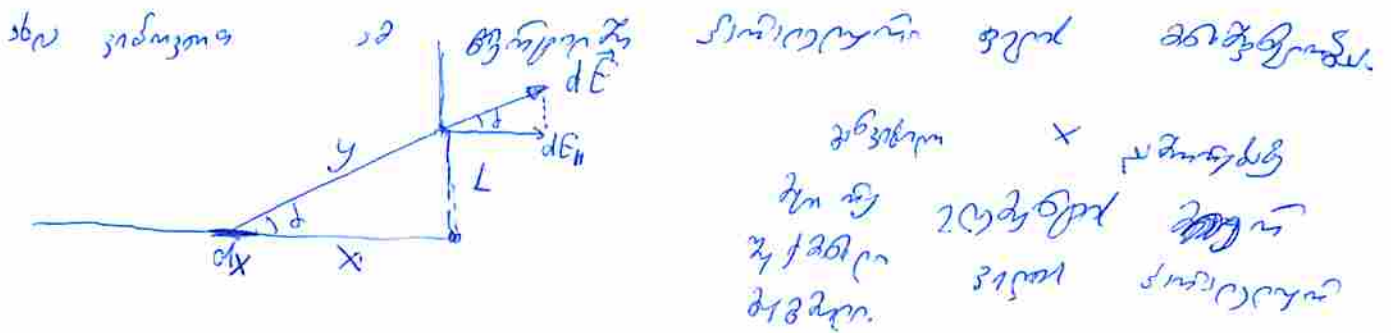 ახლა ვიპოვოთ ამ წერტილში პარალელური ველის მნიშვნელობა.
dE⃗
α
dE∥
y
L
α
dx
x
განვიხილოთ x დაშორებაზე
მყოფი ელემენტის მიერ
შექმნილი ველის პარალელური
მდგენელი.